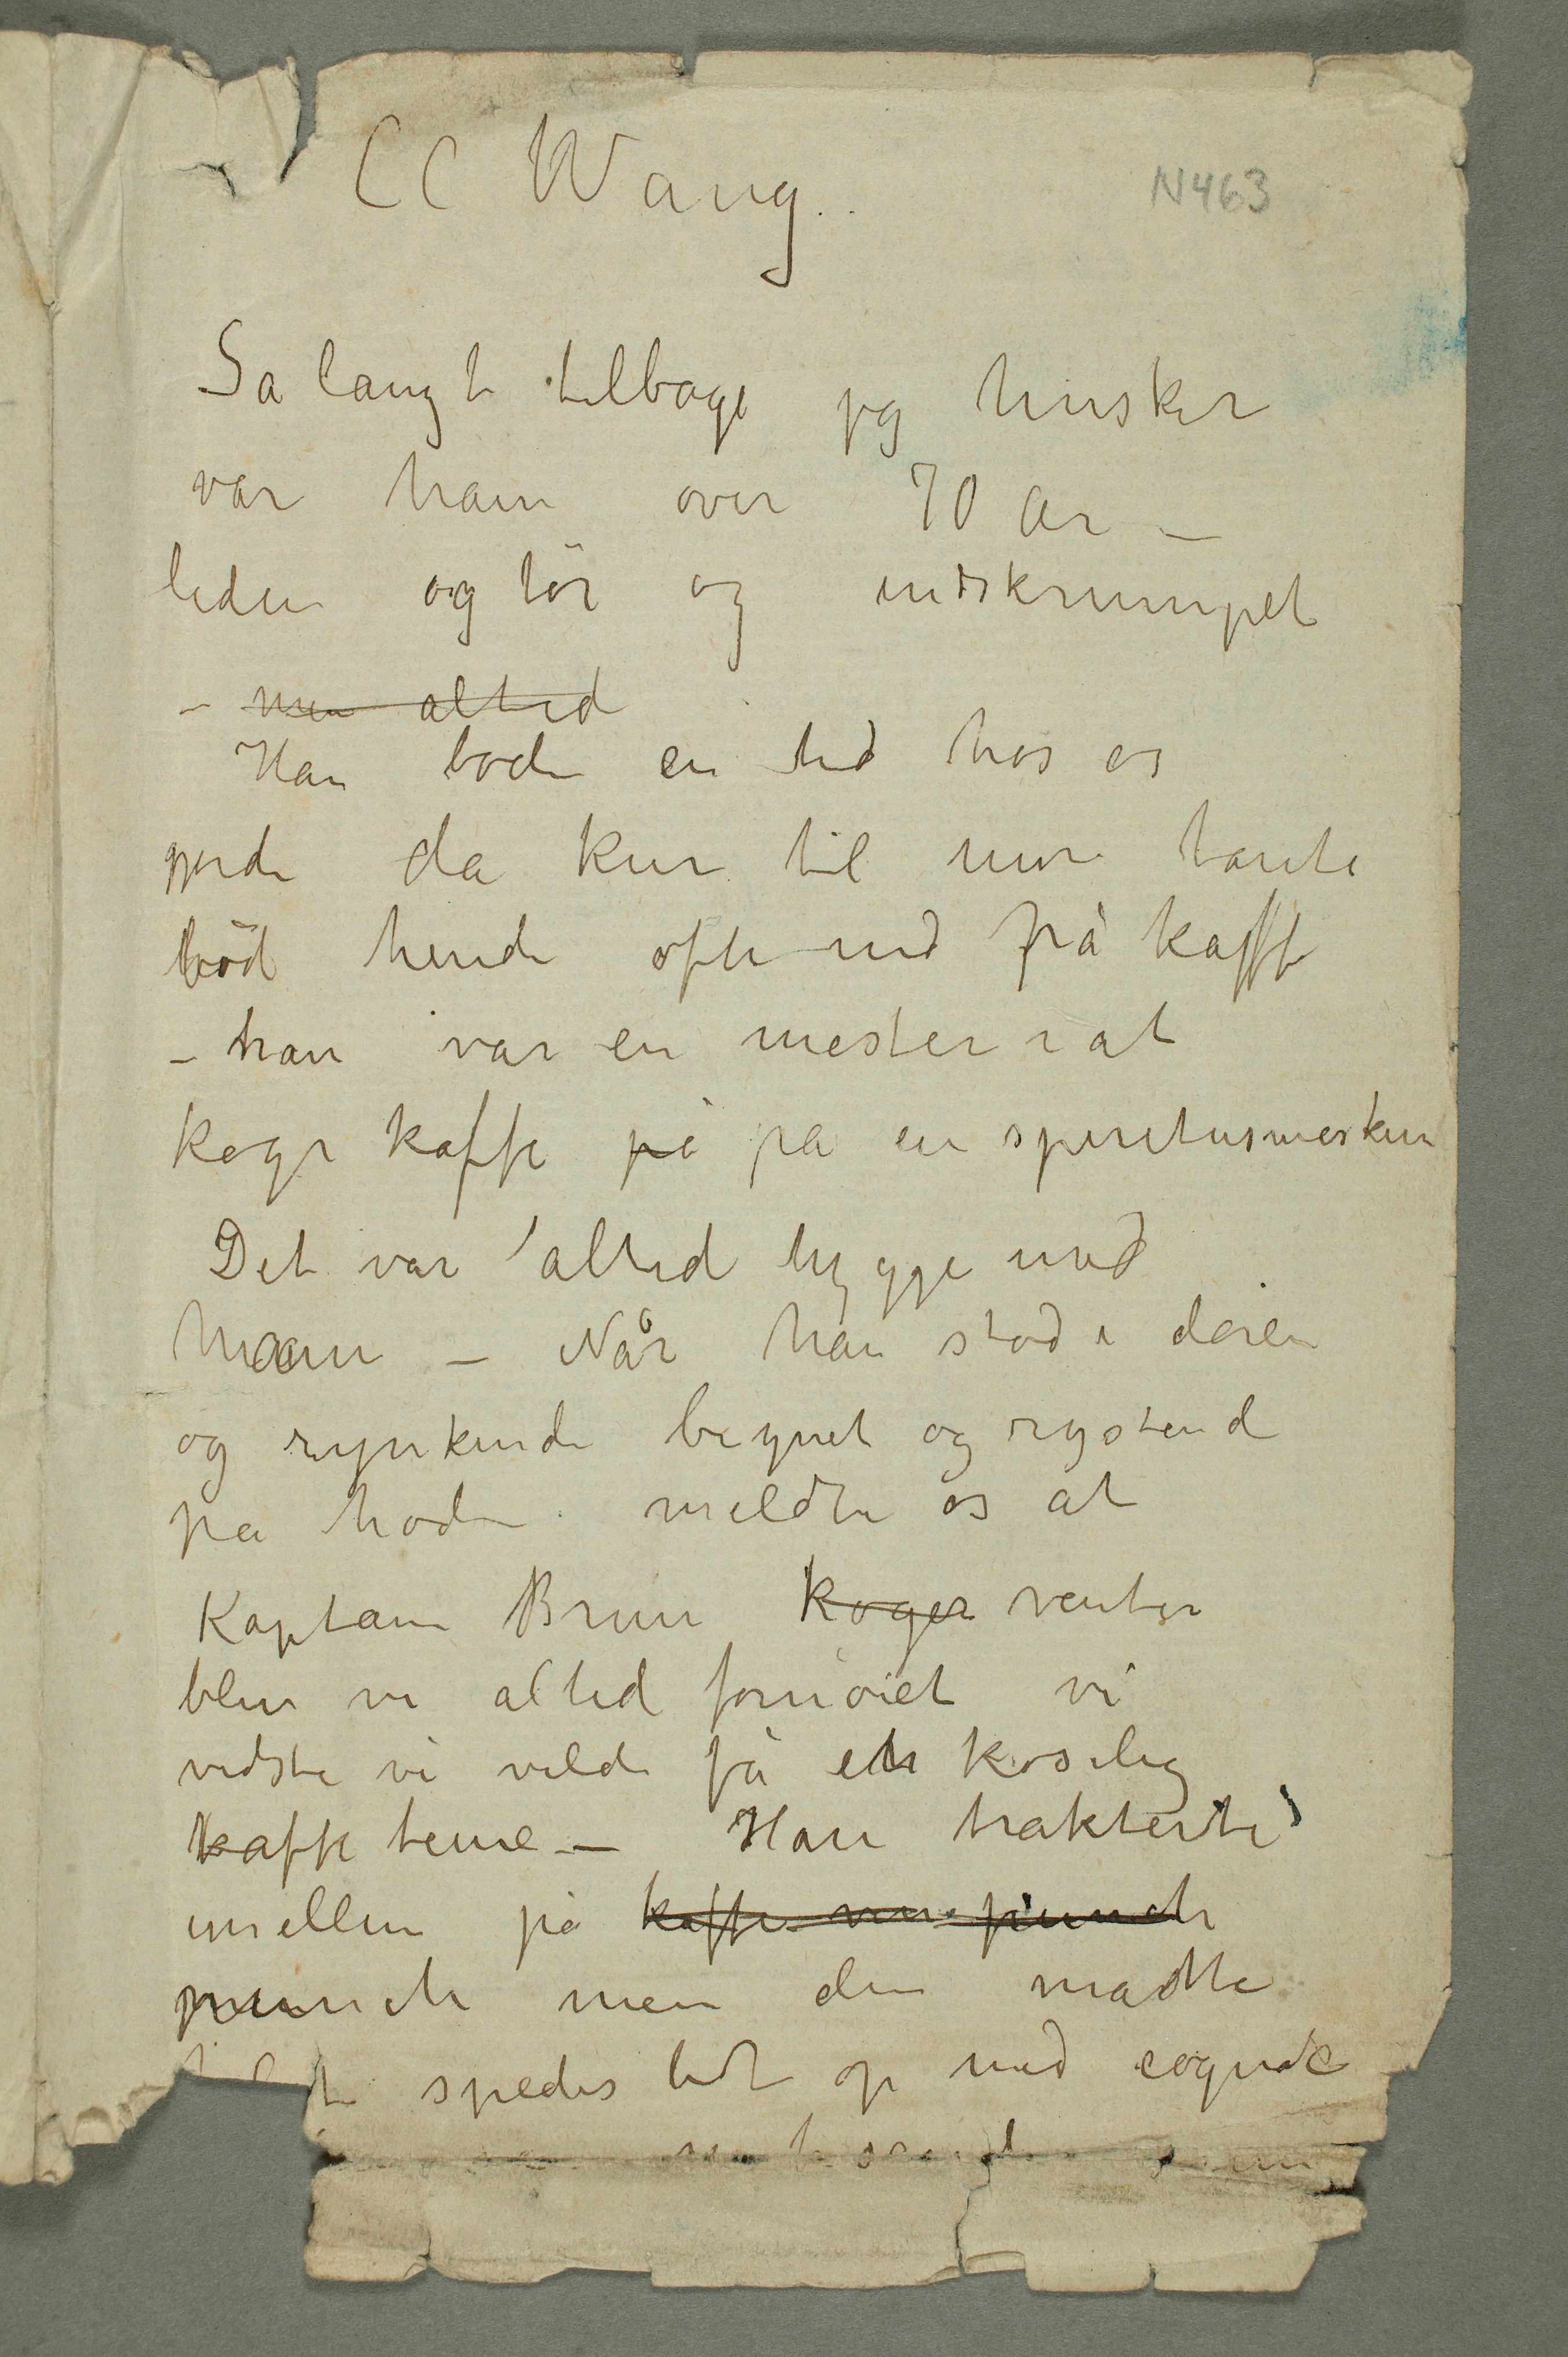 CC Wang..
N463
Sa langt tilbage jeg husker
var han over 70 år –
liden og tör og indskrumpet
– men altid
Han bode en tid hos os
gjorde da kur til min tante
böd hende ofte ned på kaffe
– han var en mester i at
koge kaffe på på en spiritusmaskin
Det var altid hygge med
ham – Når han stod i døren
og rynkende brynet og rystend
på hode meldte os at
Kaptain Brun koger venter
blev vi altid fornöiet vi
vidste vi vilde få en koselig
kaffe teme – Han trakterte
imellem på kaffe men punch
punch men den måtte
spedes lidt op med cognac